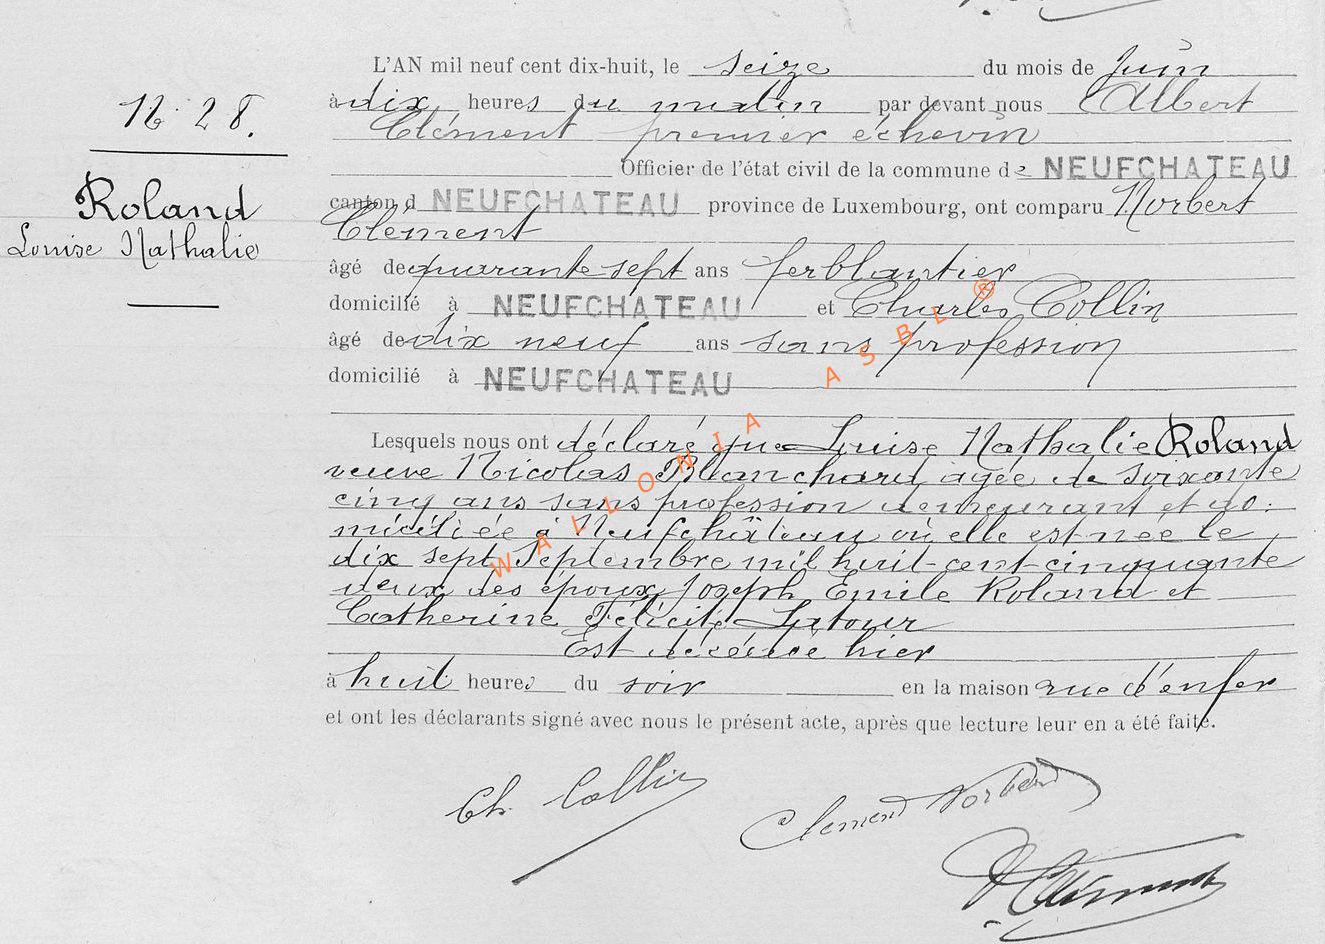 N° 28.
Roland
Louise Nathalie
L'AN mil neuf cent dix-huit, le seize du mois de Juin
à dix heures du matin par devant nous Albert
Clément premier échevin
Officier de l'état civil de la commune de NEUFCHATEAU
canton d NEUFCHATEAU province de Luxembourg, ont comparu Norbert
Clément
âgé de quarante-sept ans ferblantier
domicilié à NEUFCHATEAU et Charles Collin
âgé de dix neuf ans sans profession
domicilié à NEUFCHATEAU
Lesquels nous ont déclaré que Louise Nathalie Roland
veuve Nicolas Blanchard, agée de soixante
cinq ans sans profession demeurant et do-
miciliée à Neufchâteau où elle est née le
dix sept Septembre mil huit-cent-cinquante
deux des époux Joseph Emile Roland et
Catherine Félicité Latour
Est décédée hier
à huit heures du soir en la maison rue d'enfer
et ont les déclarants signé avec nous le présent acte, après que lecture leur en a été faite.
Ch. Collin
Clement Norbert
A Clément
WALLONIA ASBL ®